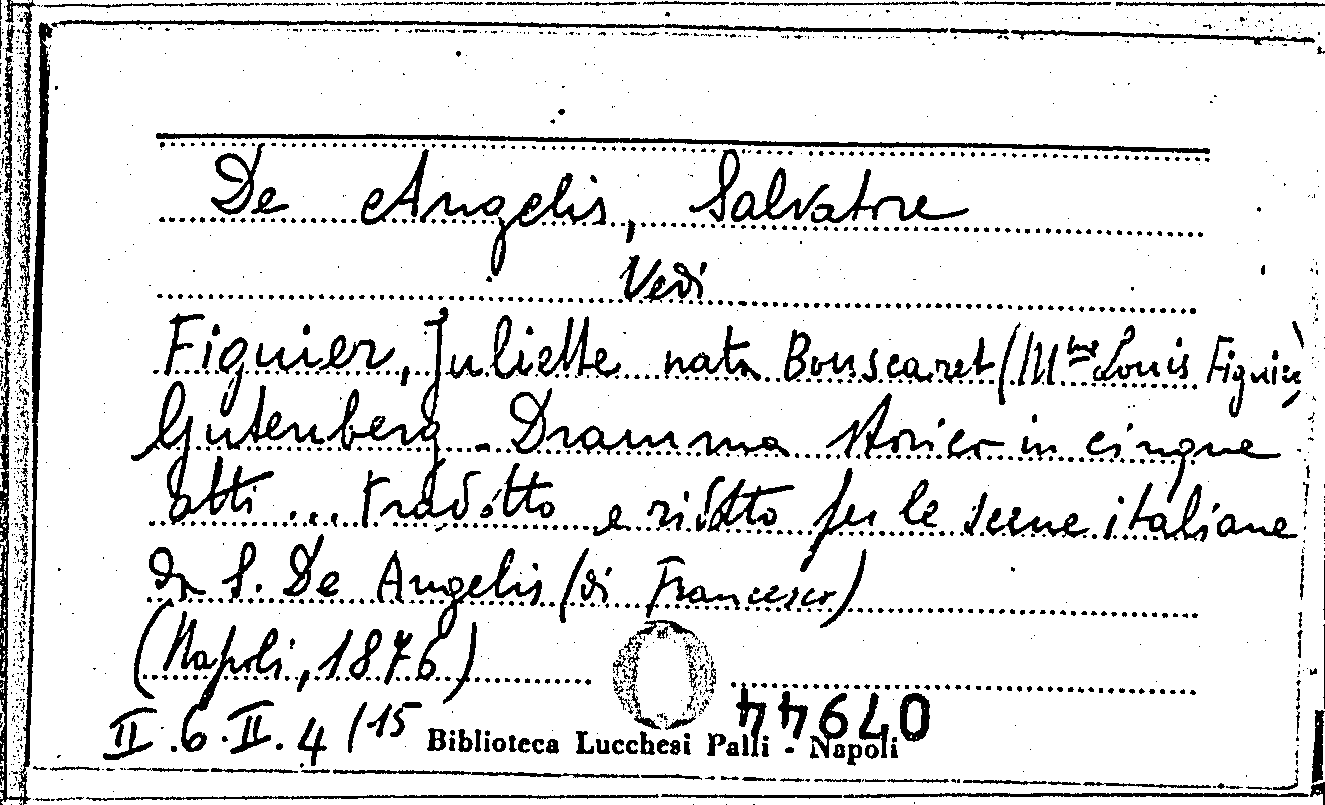 De Angelis, Salvatore
Vedi
Figuier, Juliette nata Bouscaret (Mme Louis Figuier)
Gutenberg - Dramma storico in cinque
atti ... tradotto e ridotto per le scene italiane
da S. De Angelis (di Francesco)
(Napoli, 1876)
II.6.II.4/15
Biblioteca Lucchesi Palli - Napoli